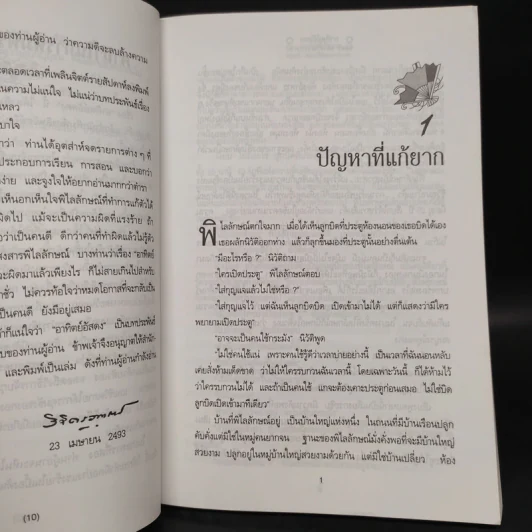 ของท่านผู้อ่าน ว่าความดีจะลบล้างความ
ตลอดเวลาที่เพลินจิตต์รายสัปดาห์ลงพิมพ์
นความไม่แน่ใจ ไม่แน่ว่าบทประพันธ์เรื่อง
เหลว
บาใจ
กว่า ท่านได้อุตส่าห์จดรายการต่าง ๆ ที่
ประกอบการเรียน การสอน และบอกว่า
ง่าย และจูงใจให้อยากอ่านมากกว่าตำรา
เห็นอกเห็นใจพิไลลักษณ์ที่ทำการแก้ตัวได้
ผิดไป แม้จะเป็นความผิดที่แรงร้าย ถ้า
เป็นคนดี ดีกว่าคนที่ทำผิดแล้วไม่รู้ตัว
สงสารพิไลลักษณ์ บางท่านว่าเรื่อง "อาทิตย์
ะผิดมาแล้วเพียงไร ก็ไม่สายเกินไปสำหรับ
ชั่ว ไม่ควรท้อใจว่าหมดโอกาสที่จะกลับเป็น
เป็นคนดี ยังมีอยู่เสมอ
าก็แน่ใจว่า "อาทิตย์อัสดง" เป็นบทประพันธ์
บของท่านผู้อ่าน ข้าพเจ้าจึงอนุญาตให้สำนัก
และพิมพ์เป็นเล่ม ดังที่ท่านผู้อ่านกำลังอ่าน
23 เมษายน 2493
(10)
1
ปัญหาที่แก้ยาก
พิไลลักษณ์ตกใจมาก เมื่อได้เห็นลูกบิดที่ประตูห้องนอนของเธอบิดได้เอง
เธอผลักนิวัติออกห่าง แล้วก็ลุกขึ้นมองที่ประตูนั้นอย่างตื่นเต้น
"มีอะไรหรือ ?" นิวัติถาม
"ใครเปิดประตู" พิไลลักษณ์ตอบ
"ใส่กุญแจแล้วไม่ใช่หรือ ?"
"ใส่กุญแจไว้ แต่ฉันเห็นลูกบิดบิด เปิดเข้ามาไม่ได้ แต่ก็แสดงว่ามีใคร
พยายามเปิดประตู"
"อาจจะเป็นคนใช้กระมัง" นิวัติพูด
"ไม่ใช่คนใช้แน่ เพราะคนใช้รู้ดีว่าเวลาบ่ายอย่างนี้ เป็นเวลาที่ฉันนอนหลับ
เคยสั่งห้ามเด็ดขาด ว่าไม่ให้ใครรบกวนฉันเวลานี้ โดยเฉพาะวันนี้ ก็ได้ห้ามไว้
ว่าใครรบกวนไม่ได้ และถ้าเป็นคนใช้ แกจะต้องเคาะประตูก่อนเสมอ ไม่ใช่บิด
ลูกบิดเปิดเข้ามาทีเดียว"
บ้านที่พิไลลักษณ์อยู่ เป็นบ้านใหญ่แห่งหนึ่ง ในถนนที่มีบ้านเรือนปลูก
คับคั่งแต่มิใช่ในหมู่คนยากจน ฐานะของพิไลลักษณ์มั่งคั่งพอที่จะมีบ้านใหญ่
สวยงาม ปลูกอยู่ในหมู่บ้านใหญ่สวยงามด้วยกัน แต่มิใช่บ้านเปลี่ยว ห้อง
1